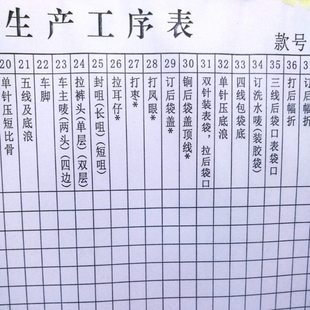 生产工序表
款号
20 21 22 23 24 25 26 27 28 29 30 31 32 33 34 35 36
单针压短比骨
五线及底浪
车脚
车主唛(两头)(四边)
拉裤头(单层)(双层)
封咀(长咀)(短咀)
拉耳仔*
打枣*
打凤眼*
订后袋盖*
后袋盖顶线*
双针装表袋,拉后袋口
单针压底浪
四线包袋底
订洗水唛(装胶袋)
三线后袋口表袋口
打后幅折